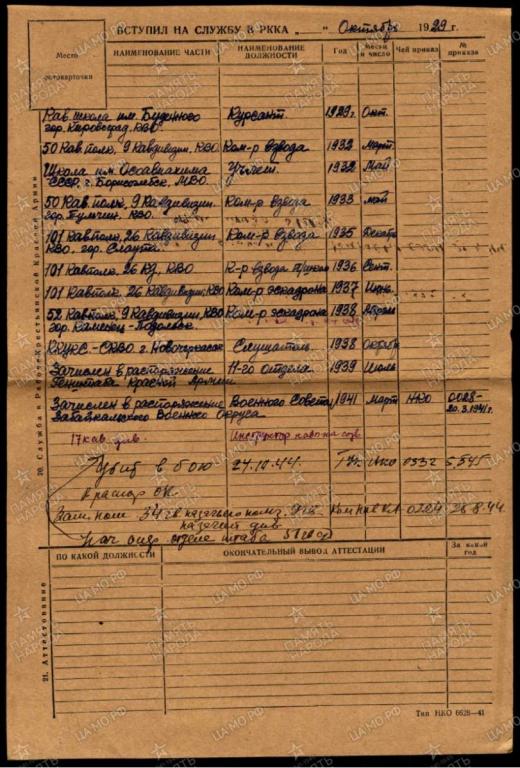 ВСТУПИЛ НА СЛУЖБУ В РККА „ “ Октябрь 1929 г.
Место фотокарточки
НАИМЕНОВАНИЕ ЧАСТИ НАИМЕНОВАНИЕ ДОЛЖНОСТИ Год Месяц и число Чей приказ № приказа
Кав. школа им. Буденного Курсант. 1929г. Окт.
гор. Кировоград. КВО.
50 Кав. полк, 9 Кавдивизии, КВО Ком-р взвода 1932 Март.
Школа им. Осоавиахима 1932 Май
СССР. г. Борисоглебск, МВО.
50 Кав. полк, 9 Кавдивизии. Ком-р взвода 1933 май
КВО.
101 Кавполк, 26 Кавдивизии Ком-р взвода 1935
КВО. гор. Славута
101 Кавполк. 26 КД, КВО К-р взвода п/школы 1936 Сент.
101 Кавполк, 26 Кавдивизии, КВО Ком-р эскадрона 1937
52 Кавполк, 9 Кавдивизии, КВО Ком-р эскадрона 1938 Апрель
гор. Каменец-Подольск.
ККУКС - СКВО. г. Новочеркасск Слушатель. 1938 Октябрь
Зачислен в распоряжение 11-го отдела 1939 Июль
Генштаба Красной Армии
Зачислен в распоряжение Военного Совета 1941 Март НКО 0028-
Забайкальского Военного Округа 20.3.1941г.
17 кав. див. Инструктор
Убит в бою 24.10.44. 0332
Зам. ком 34 гв казачьего полка 0224 28.8.44
казачьей див
Нач опер отделе штаба
20. Служба в Рабоче-Крестьянской Красной Армии
ПО КАКОЙ ДОЛЖНОСТИ ОКОНЧАТЕЛЬНЫЙ ВЫВОД АТТЕСТАЦИИ За какой год
21. Аттестование
Тип НКО 6628—41
ПАМЯТЬ НАРОДА
ЦАМО.РФ